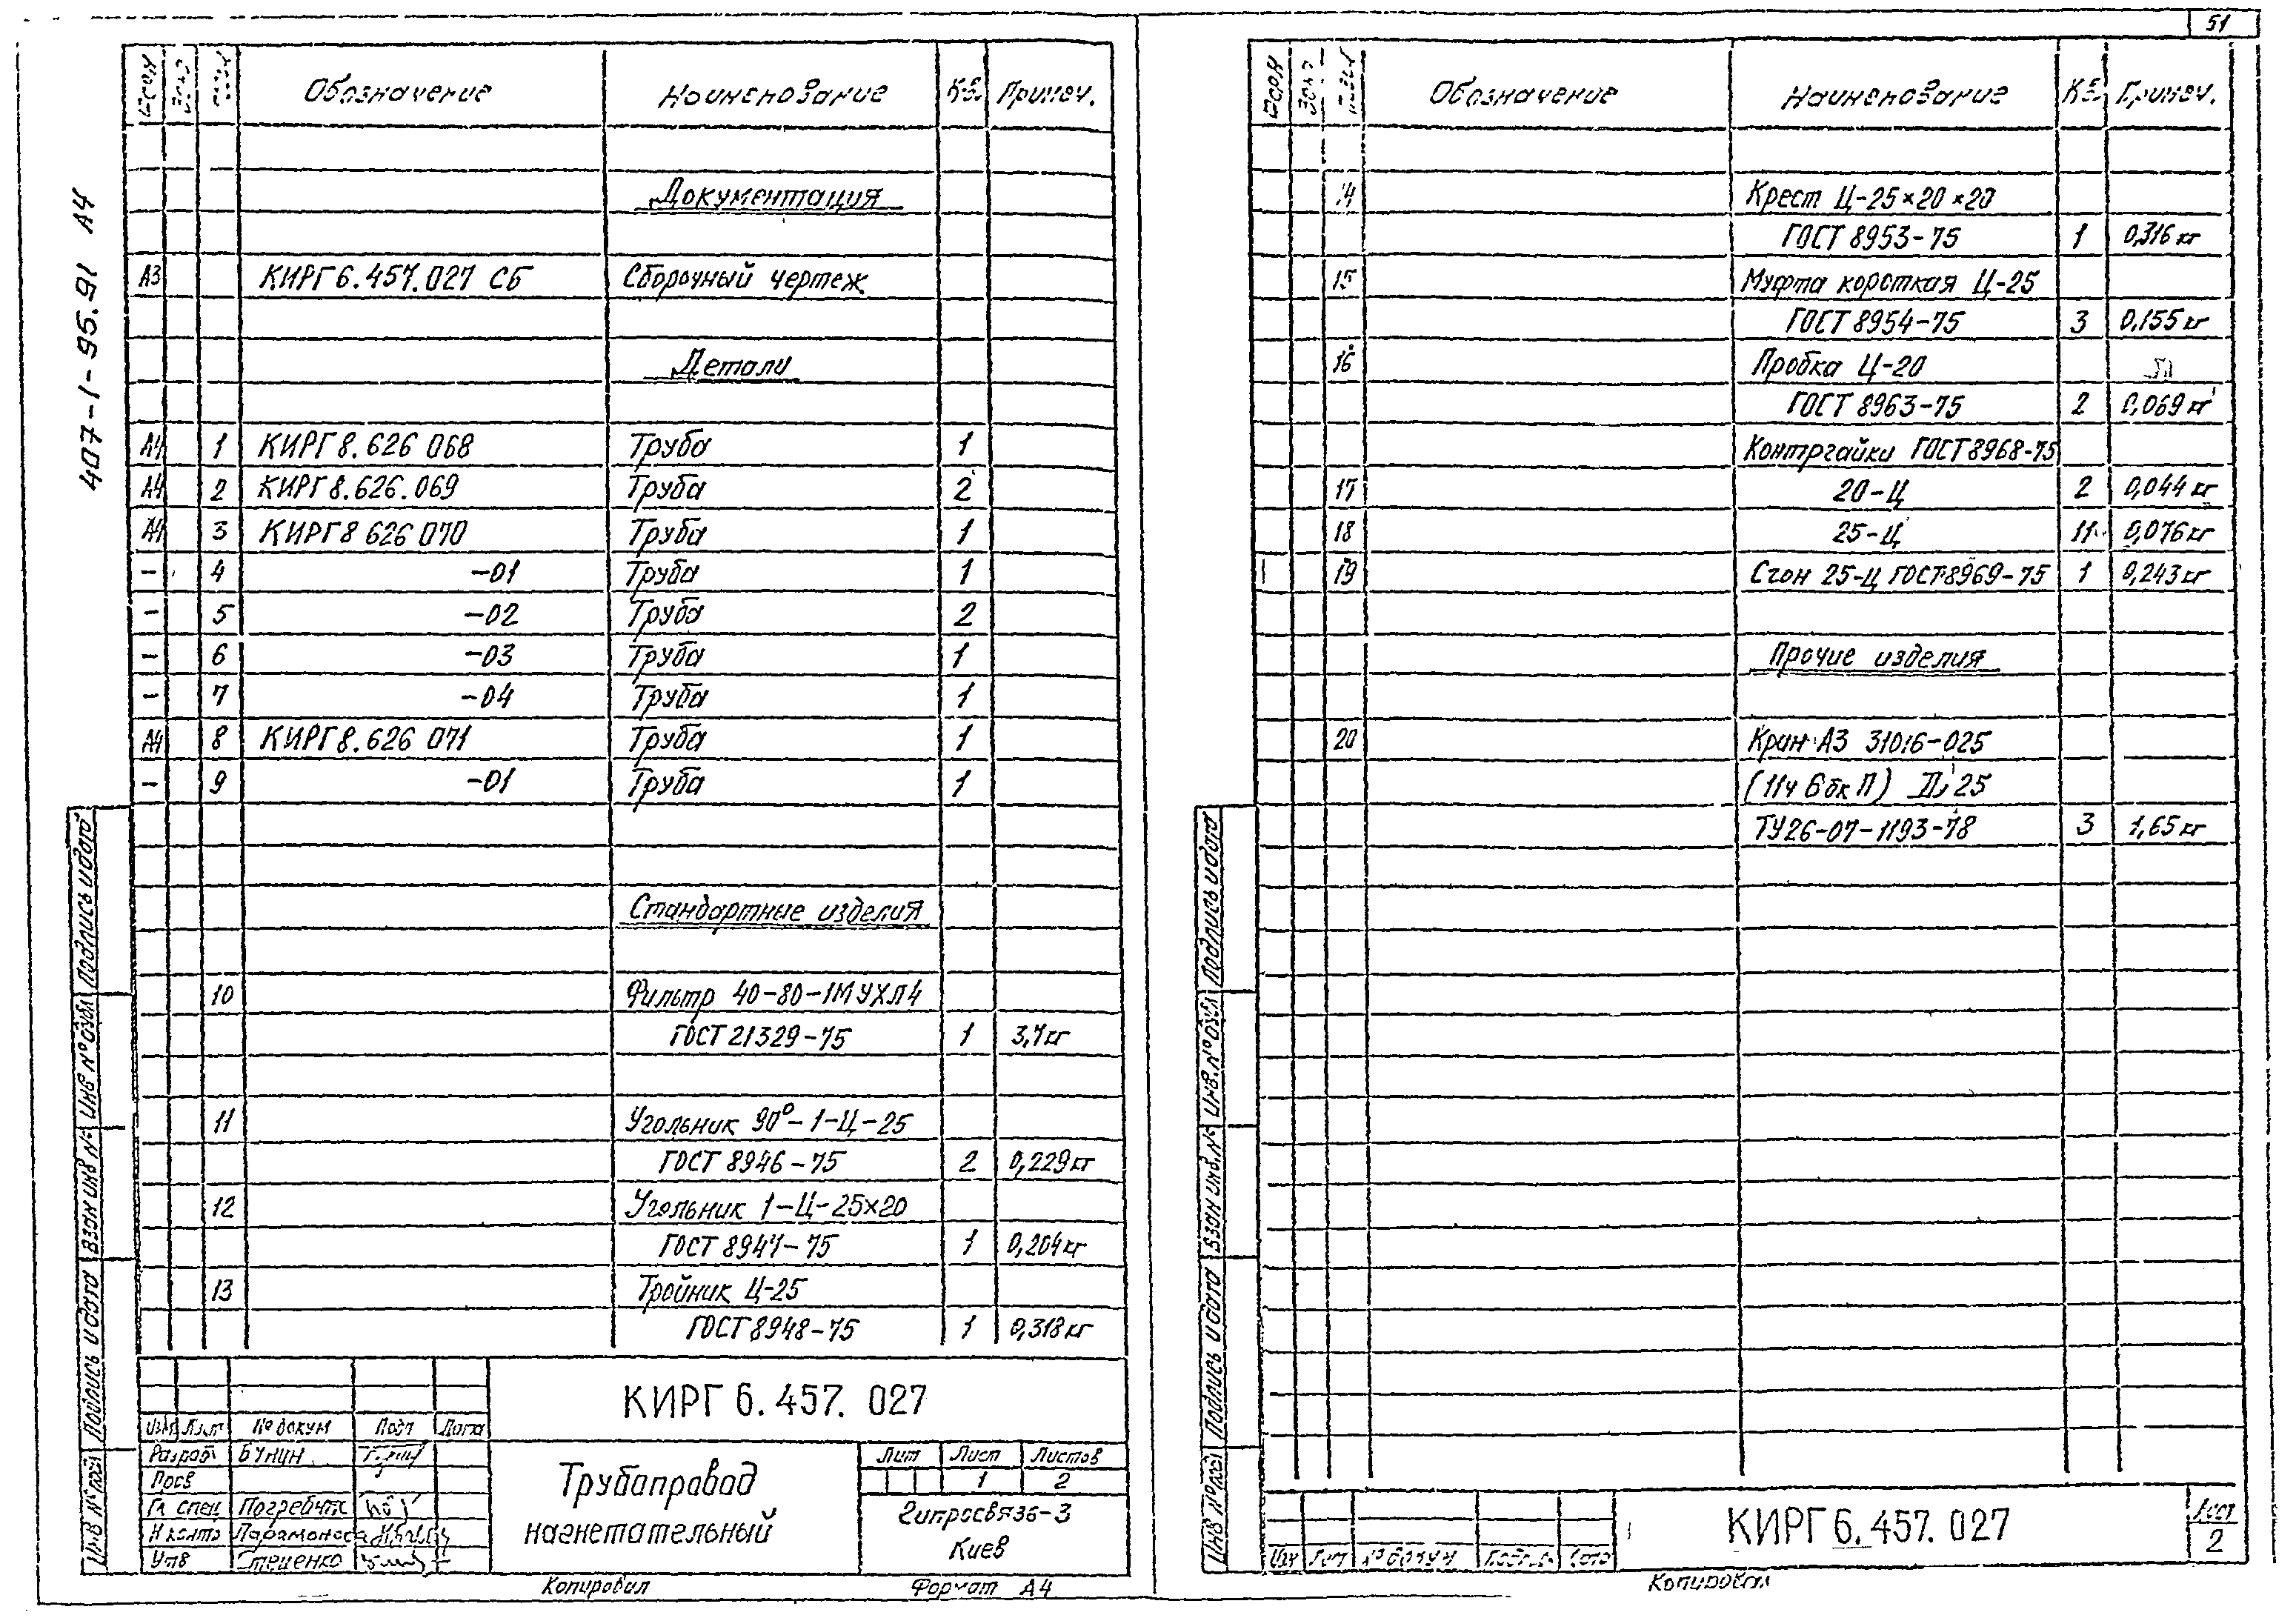 51
407-1-95.91 А4
Обозначение Наименование Примеч.
Документация
А3 КИРГ 6.457.027 СБ Сборочный чертеж
Детали
А4 1 КИРГ 8.626 068 Труба 1
А4 2 КИРГ 8.626.069 Труба 2
А4 3 КИРГ 8 626 070 Труба 1
- 4 -01 Труба 1
- 5 -02 Труба 2
- 6 -03 Труба 1
- 7 -04 Труба 1
А4 8 КИРГ 8.626 071 Труба 1
- 9 -01 Труба 1
Стандартные изделия
10 Фильтр 40-80-1М УХЛ4
ГОСТ 21329-75 1 3,7 кг
11 Угольник 90°-1-Ц-25
ГОСТ 8946-75 2 0,229 кг
12 Угольник 1-Ц-25×20
ГОСТ 8947-75 1 0,204 кг
13 Тройник Ц-25
ГОСТ 8948-75 1 0,318 кг
Подпись и дата
Инв № дубл
Взам инв №
Подпись и дата
Инв № подл
КИРГ 6.457.027
Изм Лист № докум Подп Дата
Разраб Бунин
Пров
Гл спец
Н контр
Утв Стеценко
Трубопровод
нагнетательный
Лит Лист Листов
1 2
Гипросвязь-3
Киев
Копировал Формат А4
Обозначение Наименование Примеч.
14 Крест Ц-25×20×20
ГОСТ 8953-75 1 0,316 кг
15 Муфта короткая Ц-25
ГОСТ 8954-75 3 0,155 кг
16 Пробка Ц-20
ГОСТ 8963-75 2 0,069 кг
Контргайки ГОСТ 8968-75
17 20-Ц 2 0,044 кг
18 25-Ц 11 0,076 кг
19 Сгон 25-Ц ГОСТ 8969-75 1 0,243 кг
Прочие изделия
20 Кран А3 31016-025
(11ч 6бк П) Ду 25
ТУ26-07-1193-78 3 1,65 кг
Подпись и дата
Инв. № дубл
Взам инв. №
Подпись и дата
Инв № подл
КИРГ 6.457.027
Лист
2
Копировал